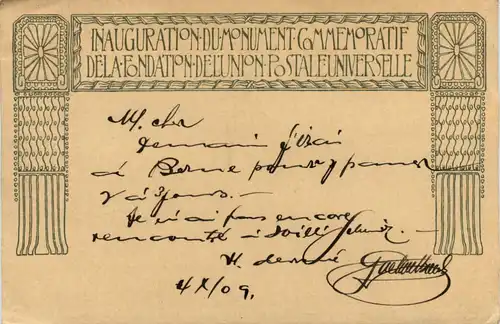 INAUGURATION·DU·MONUMENT·COMMEMORATIF
DE·LA·FONDATION·DE·L'UNION·POSTALE·UNIVERSELLE
M. cher
Demain j'irai
à Berne pour y passer
2 à 3 jours. —
Je n'ai pas encore
rencontré
4 X/09.